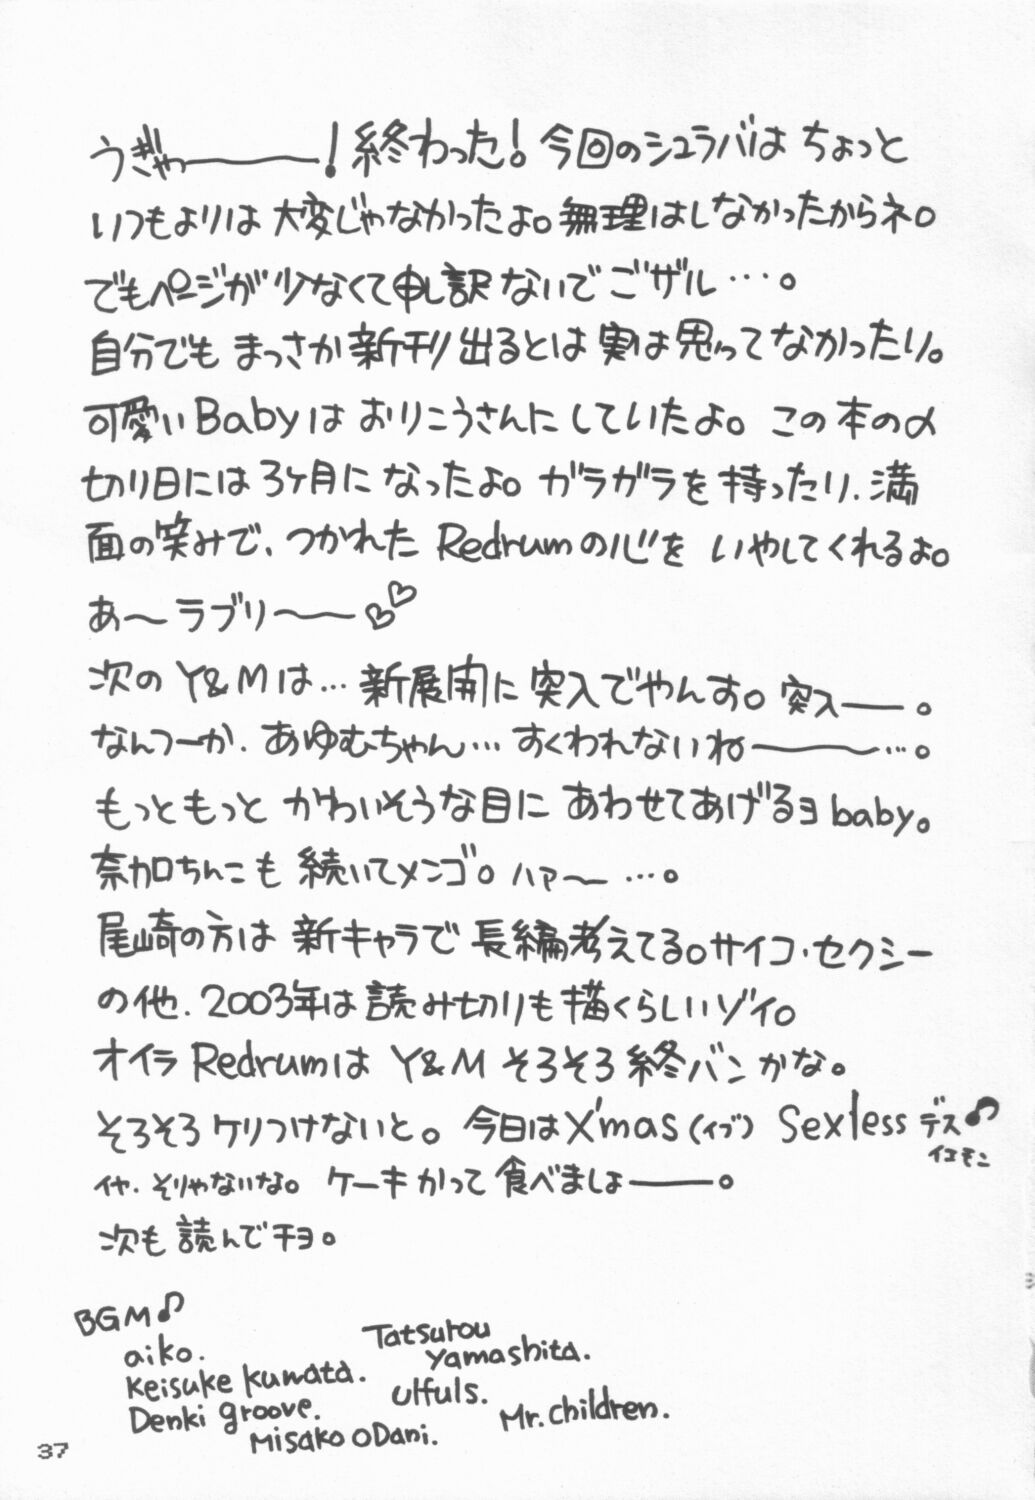 うぎゃ――――!終わった!今回のシュラバは ちょっと
いつもよりは 大変じゃなかったよ。無理はしなかったからネ。
でもページが少なくて申し訳ないでござル…。
自分でも まっさか新刊出るとは実は思ってなかったり。
可愛いBabyは おりこうさんにしていたよ。この本の〆
切り日には3ケ月になったよ。ガラガラを持ったり、満
面の笑みで、つかれた Redrumの心を いやしてくれるよ。
あ〜ラブリ〜――♡♡
次の Y&Mは…新展開に突入でやんす。突入――。
なんつーか、あゆむちゃん… すくわれないね――〜…。
もっともっと かわいそうな目に あわせてあげるヨ baby。
奈加ちんこも 続いてメンゴ。ハァ〜 …。
尾崎の方は 新キャラで 長編考えてる。サイコ・セクシー
の他、2003年は読み切りも描くらしいゾイ。
オイラ Redrumは Y&M そろそろ終バンかな。
そろそろケリつけないと。今日はX'mas(イブ) Sexlessデス♪
イエモン
イヤ、そりゃないな。ケーキかって食べましょ―――。
次も 読んでチョ。
BGM♪
aiko.
Tatsurou
Yamashita.
Keisuke kuwata.
Ulfuls.
Denki groove.
Mr.children.
Misako oDani.
37